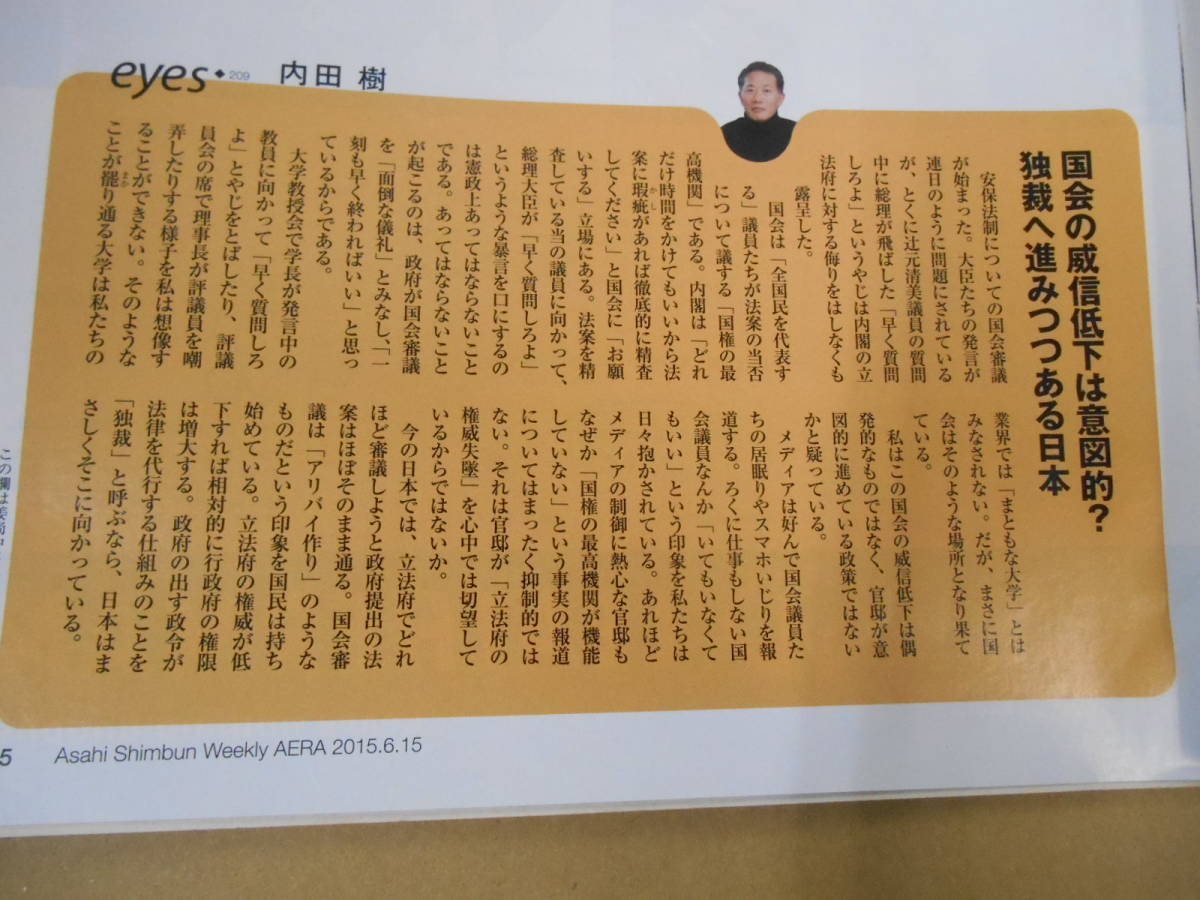 eyes◆209 内田 樹
国会の威信低下は意図的?
独裁へ進みつつある日本
安保法制についての国会審議
が始まった。大臣たちの発言が
連日のように問題にされている
が、とくに辻元清美議員の質問
中に総理が飛ばした「早く質問
しろよ」というやじは内閣の立
法府に対する侮りをはしなくも
露呈した。
国会は「全国民を代表す
る」議員たちが法案の当否
について議する「国権の最
高機関」である。内閣は「どれ
だけ時間をかけてもいいから法
案に瑕疵があれば徹底的に精査
してください」と国会に「お願
いする」立場にある。法案を精
査している当の議員に向かって、
総理大臣が「早く質問しろよ」
というような暴言を口にするの
は憲政上あってはならないこと
である。あってはならないこと
が起こるのは、政府が国会審議
を「面倒な儀礼」とみなし、「一
刻も早く終わればいい」と思っ
ているからである。
大学教授会で学長が発言中の
教員に向かって「早く質問しろ
よ」とやじをとばしたり、評議
員会の席で理事長が評議員を嘲
弄したりする様子を私は想像す
ることができない。そのような
ことが罷り通る大学は私たちの
業界では「まともな大学」とは
みなされない。だが、まさに国
会はそのような場所となり果て
ている。
私はこの国会の威信低下は偶
発的なものではなく、官邸が意
図的に進めている政策ではない
かと疑っている。
メディアは好んで国会議員た
ちの居眠りやスマホいじりを報
道する。ろくに仕事もしない国
会議員なんか「いてもいなくて
もいい」という印象を私たちは
日々抱かされている。あれほど
メディアの制御に熱心な官邸も
なぜか「国権の最高機関が機能
していない」という事実の報道
についてはまったく抑制的では
ない。それは官邸が「立法府の
権威失墜」を心中では切望して
いるからではないか。
今の日本では、立法府でどれ
ほど審議しようと政府提出の法
案はほぼそのまま通る。国会審
議は「アリバイ作り」のような
ものだという印象を国民は持ち
始めている。立法府の権威が低
下すれば相対的に行政府の権限
は増大する。政府の出す政令が
法律を代行する仕組みのことを
「独裁」と呼ぶなら、日本はま
さしくそこに向かっている。
この欄は
5 Asahi Shimbun Weekly AERA 2015.6.15